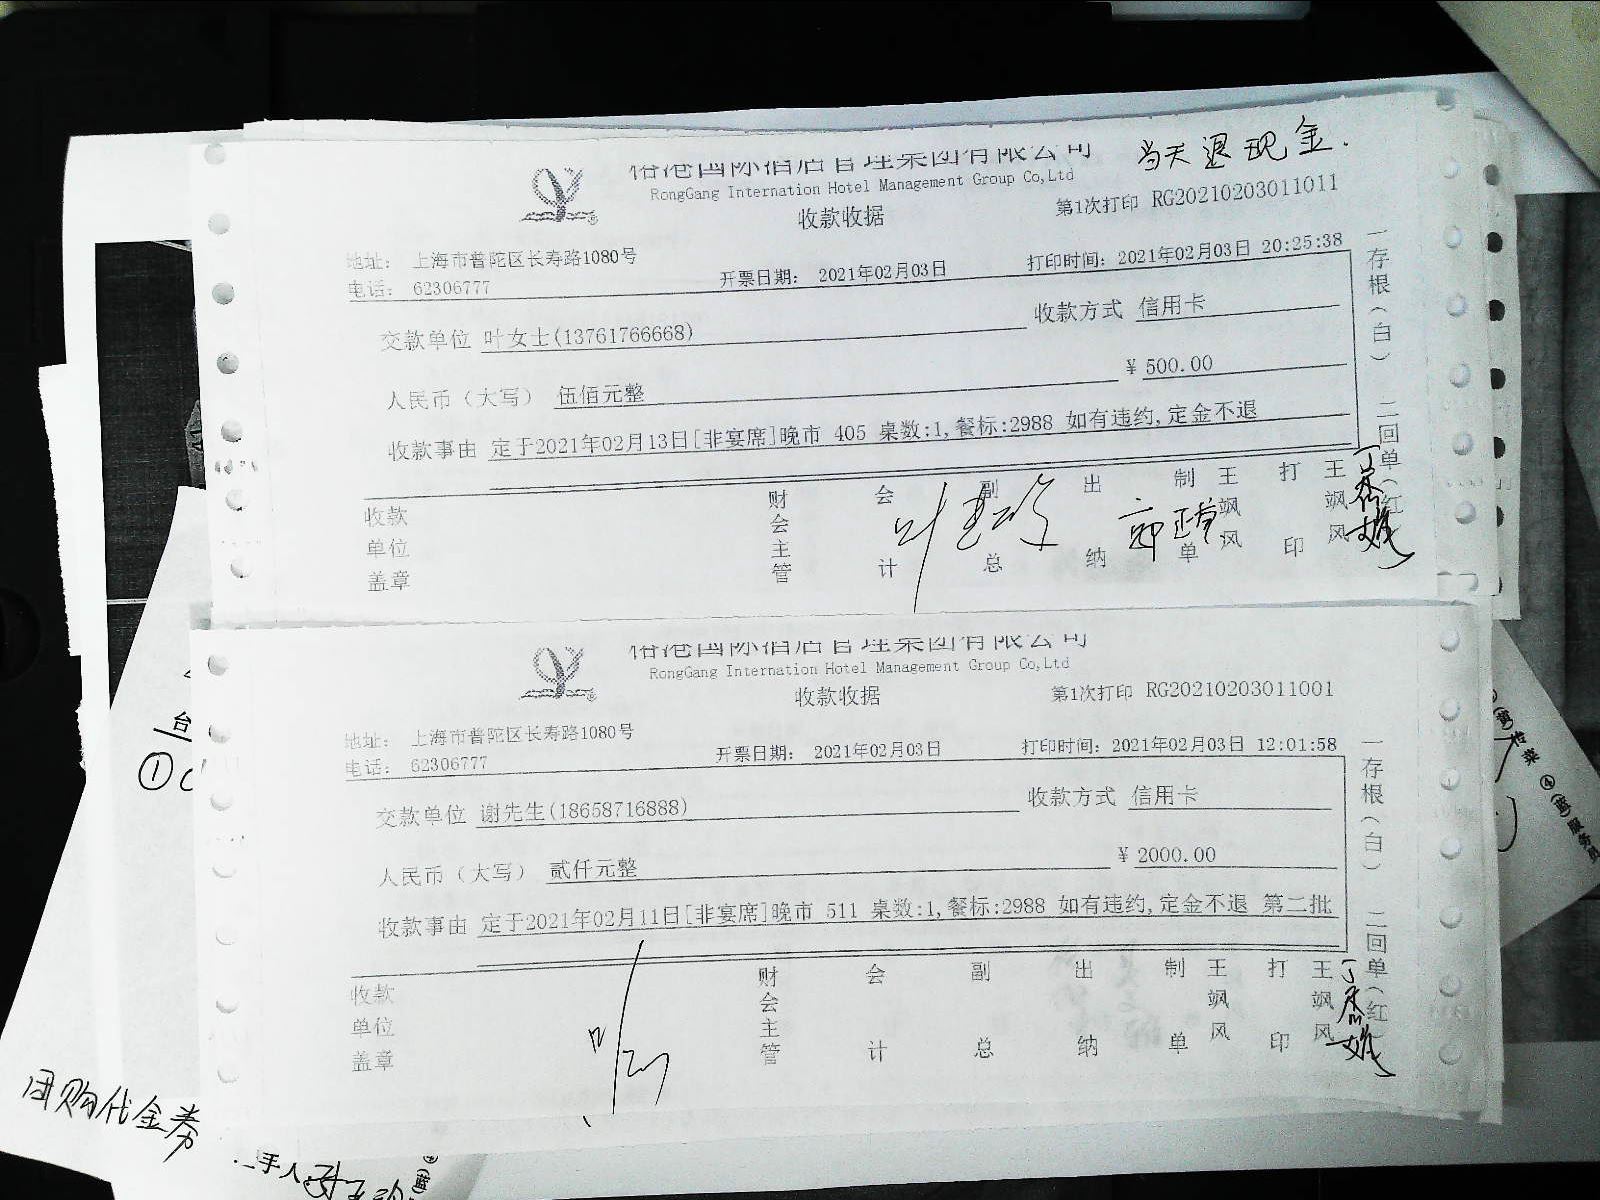 当天退现金.
RongGang Internation Hotel Management Group Co,Ltd
收款收据
第1次打印 RG20210203011011
地址： 上海市普陀区长寿路1080号
电话： 62306777
开票日期： 2021年02月03日
打印时间：2021年02月03日 20:25:38
交款单位 叶女士(13761766668)
收款方式 信用卡
人民币（大写） 伍佰元整
¥ 500.00
收款事由 定于2021年02月13日[非宴席]晚市 405 桌数:1,餐标:2988 如有违约,定金不退
收款单位盖章
财会主管
会计
副总
出纳
制单
王飒风
打印
王飒风
一存根（白） 二回单（红）
国际酒店管理集团有限公司
RongGang Internation Hotel Management Group Co,Ltd
收款收据
第1次打印 RG20210203011001
地址： 上海市普陀区长寿路1080号
电话： 62306777
开票日期： 2021年02月03日
打印时间：2021年02月03日 12:01:58
交款单位 谢先生(18658716888)
收款方式 信用卡
人民币（大写） 贰仟元整
¥ 2000.00
收款事由 定于2021年02月11日[非宴席]晚市 511 桌数:1,餐标:2988 如有违约,定金不退 第二批
收款单位盖章
财会主管
会计
副总
出纳
制单
王飒风
打印
王飒风
一存根（白） 二回单（红）
台
①
④(蓝)服务员
团购代金券
手人